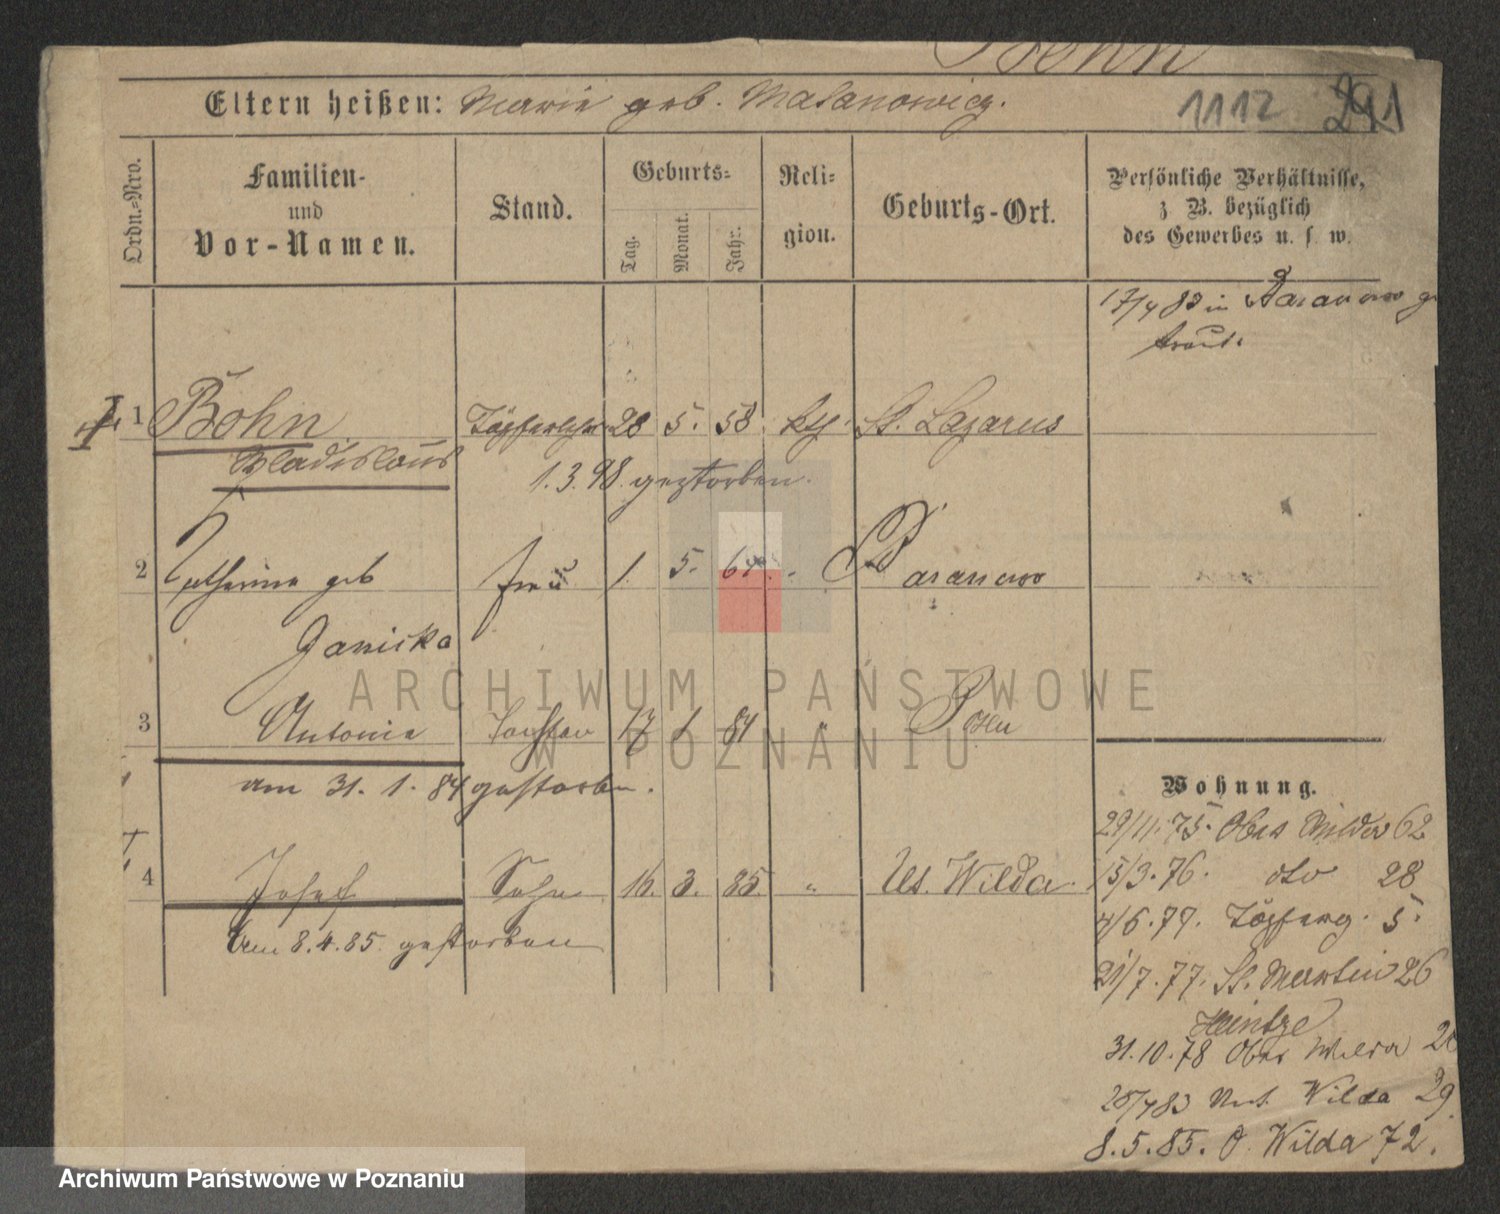 Bohn
Eltern heißen: Marie geb. Matanowicz.
1112 291
Ordn.-Nro.
Familien-
und
Vor-Namen.
Stand.
Geburts-
Tag.
Monat.
Jahr.
Reli-
gion.
Geburts-Ort.
Persönliche Verhältnisse,
z B. bezüglich
des Gewerbes u. s w.
17/4 83 in Baranowo ge
traut.
1 Bohn Töpferlehr 28 5. 58. kth. St. Lazarus
Wladislaus
1.3.98. gestorben.
2 Catharina geb Frau 1. 5. 64. Baranowo
Janiska
3 Antonie Tochter 17 1 84 " Posen
am 31. 1. 84 gestorben.
4 Josef Sohn 16. 3. 85. " Ut. Wilda.
Am 8.4.85. gestorben
Wohnung.
29/11.75. Ober Wilda 62
15/3.76. dto 28
4/6.77. Töpferg. 5.
21/7.77. St. Martin 26
Heintze
31.10.78 Ober Wilda
25/4 83 Unt. Wilda 29.
8.5.85. O. Wilda 72.
ARCHIWUM PAŃSTWOWE
W POZNANIU
Archiwum Państwowe w Poznaniu